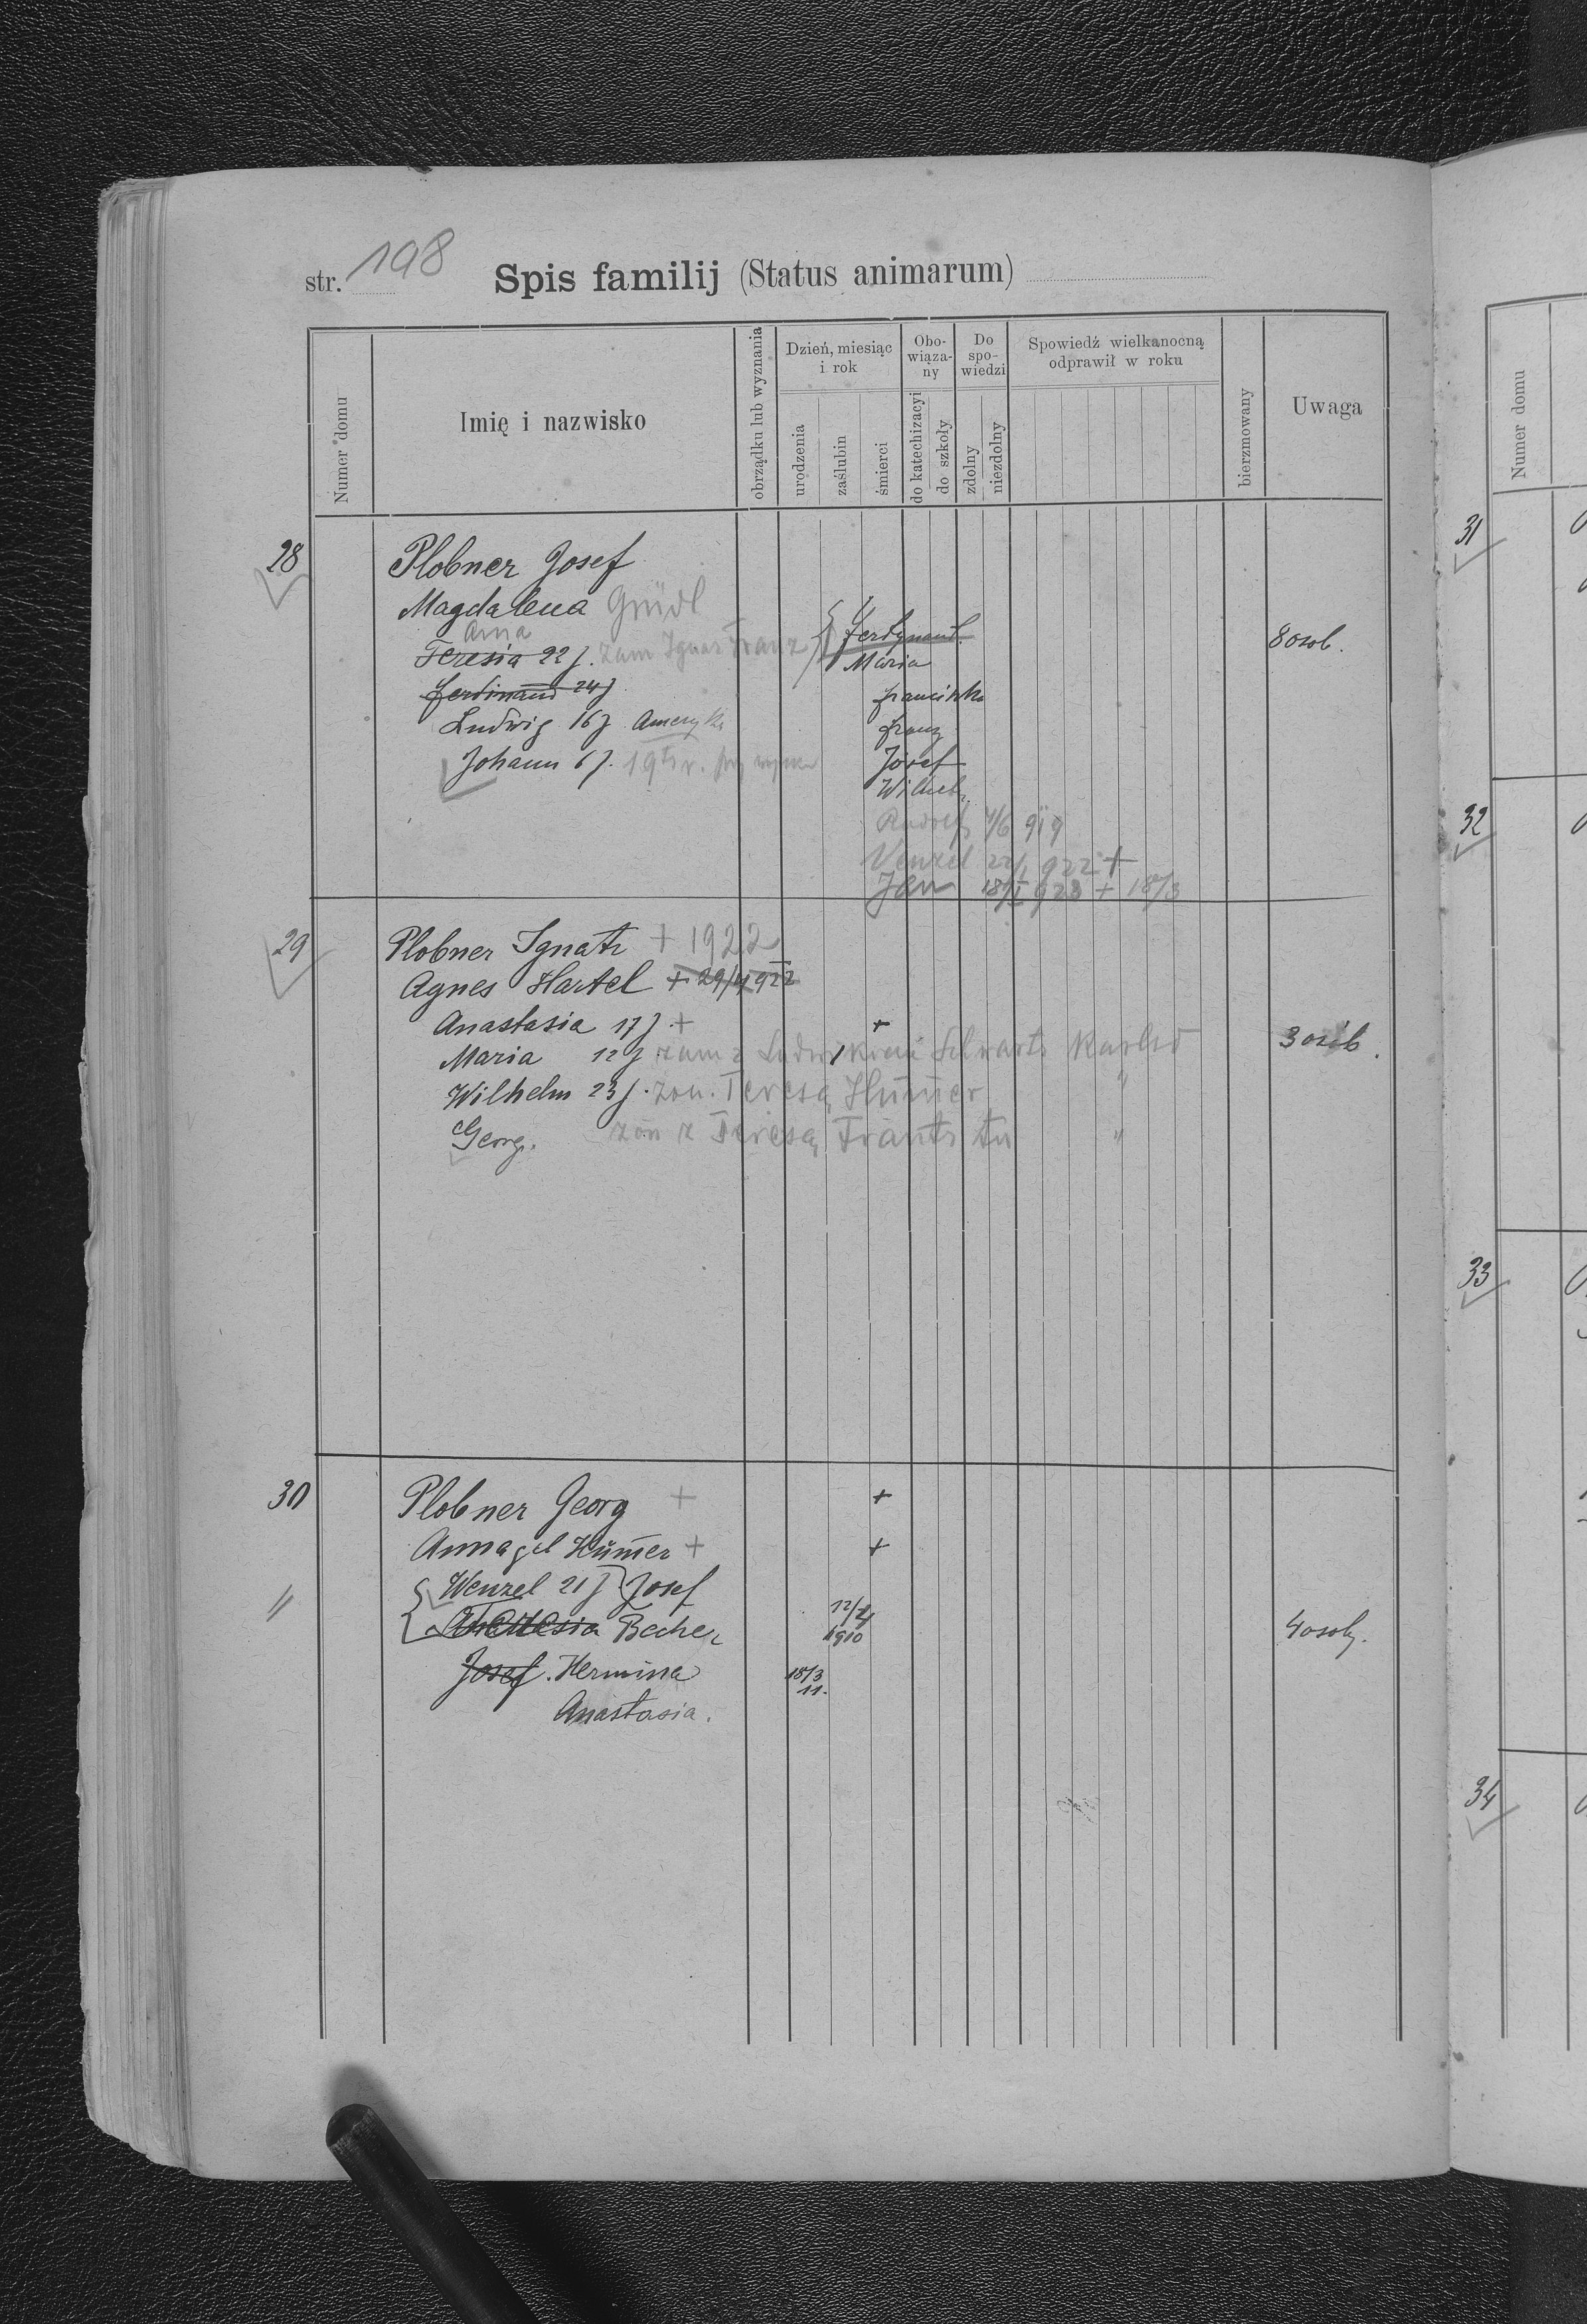 str. 198
Spis familij (Status animarum)
Numer domu
Imię i nazwisko
obrządku lub wyznania
Dzień, miesiąc i rok
urodzenia
zaślubin
śmierci
Obo-wiąza-ny
do katechizacyi
do szkoły
Do spo-wiedzi
zdolny
niezdolny
Spowiedź wielkanocną odprawił w roku
bierzmowany
Uwaga
28
Plobner Josef
Magdalena Grüdl
Anna
Teresia 22 j. zam Ignac Franz
Ferdinand 24 j
Ludwig 16 j Ameryka
Johann 6 j.
Ferdynand.
Maria
franciszka
franz
Józef
Wilhelm
Rudolf 4/6 919
Venzel 22/1 922 +
Jan 18/I 923 + 18/3
8 osob.
29
Plobner Ignatz + 1922
Agnes Hartel + 29/4 922
Anastasia 17 j. + +
Maria 12 j zam z Ludwikiem Schwartz
Wilhelm 23 j. żon. Teresą Hummer "
Georg. żon z Teresą Frantz tu "
3 osób.
30
Plobner Georg + +
Anna gel Hummer + +
"
Wenzel 21 j Josef
Becher
12/4 1910
Josef. Hermina
18/3 11.
Anastasia.
4 osoby.
Numer domu
31
32
33
34